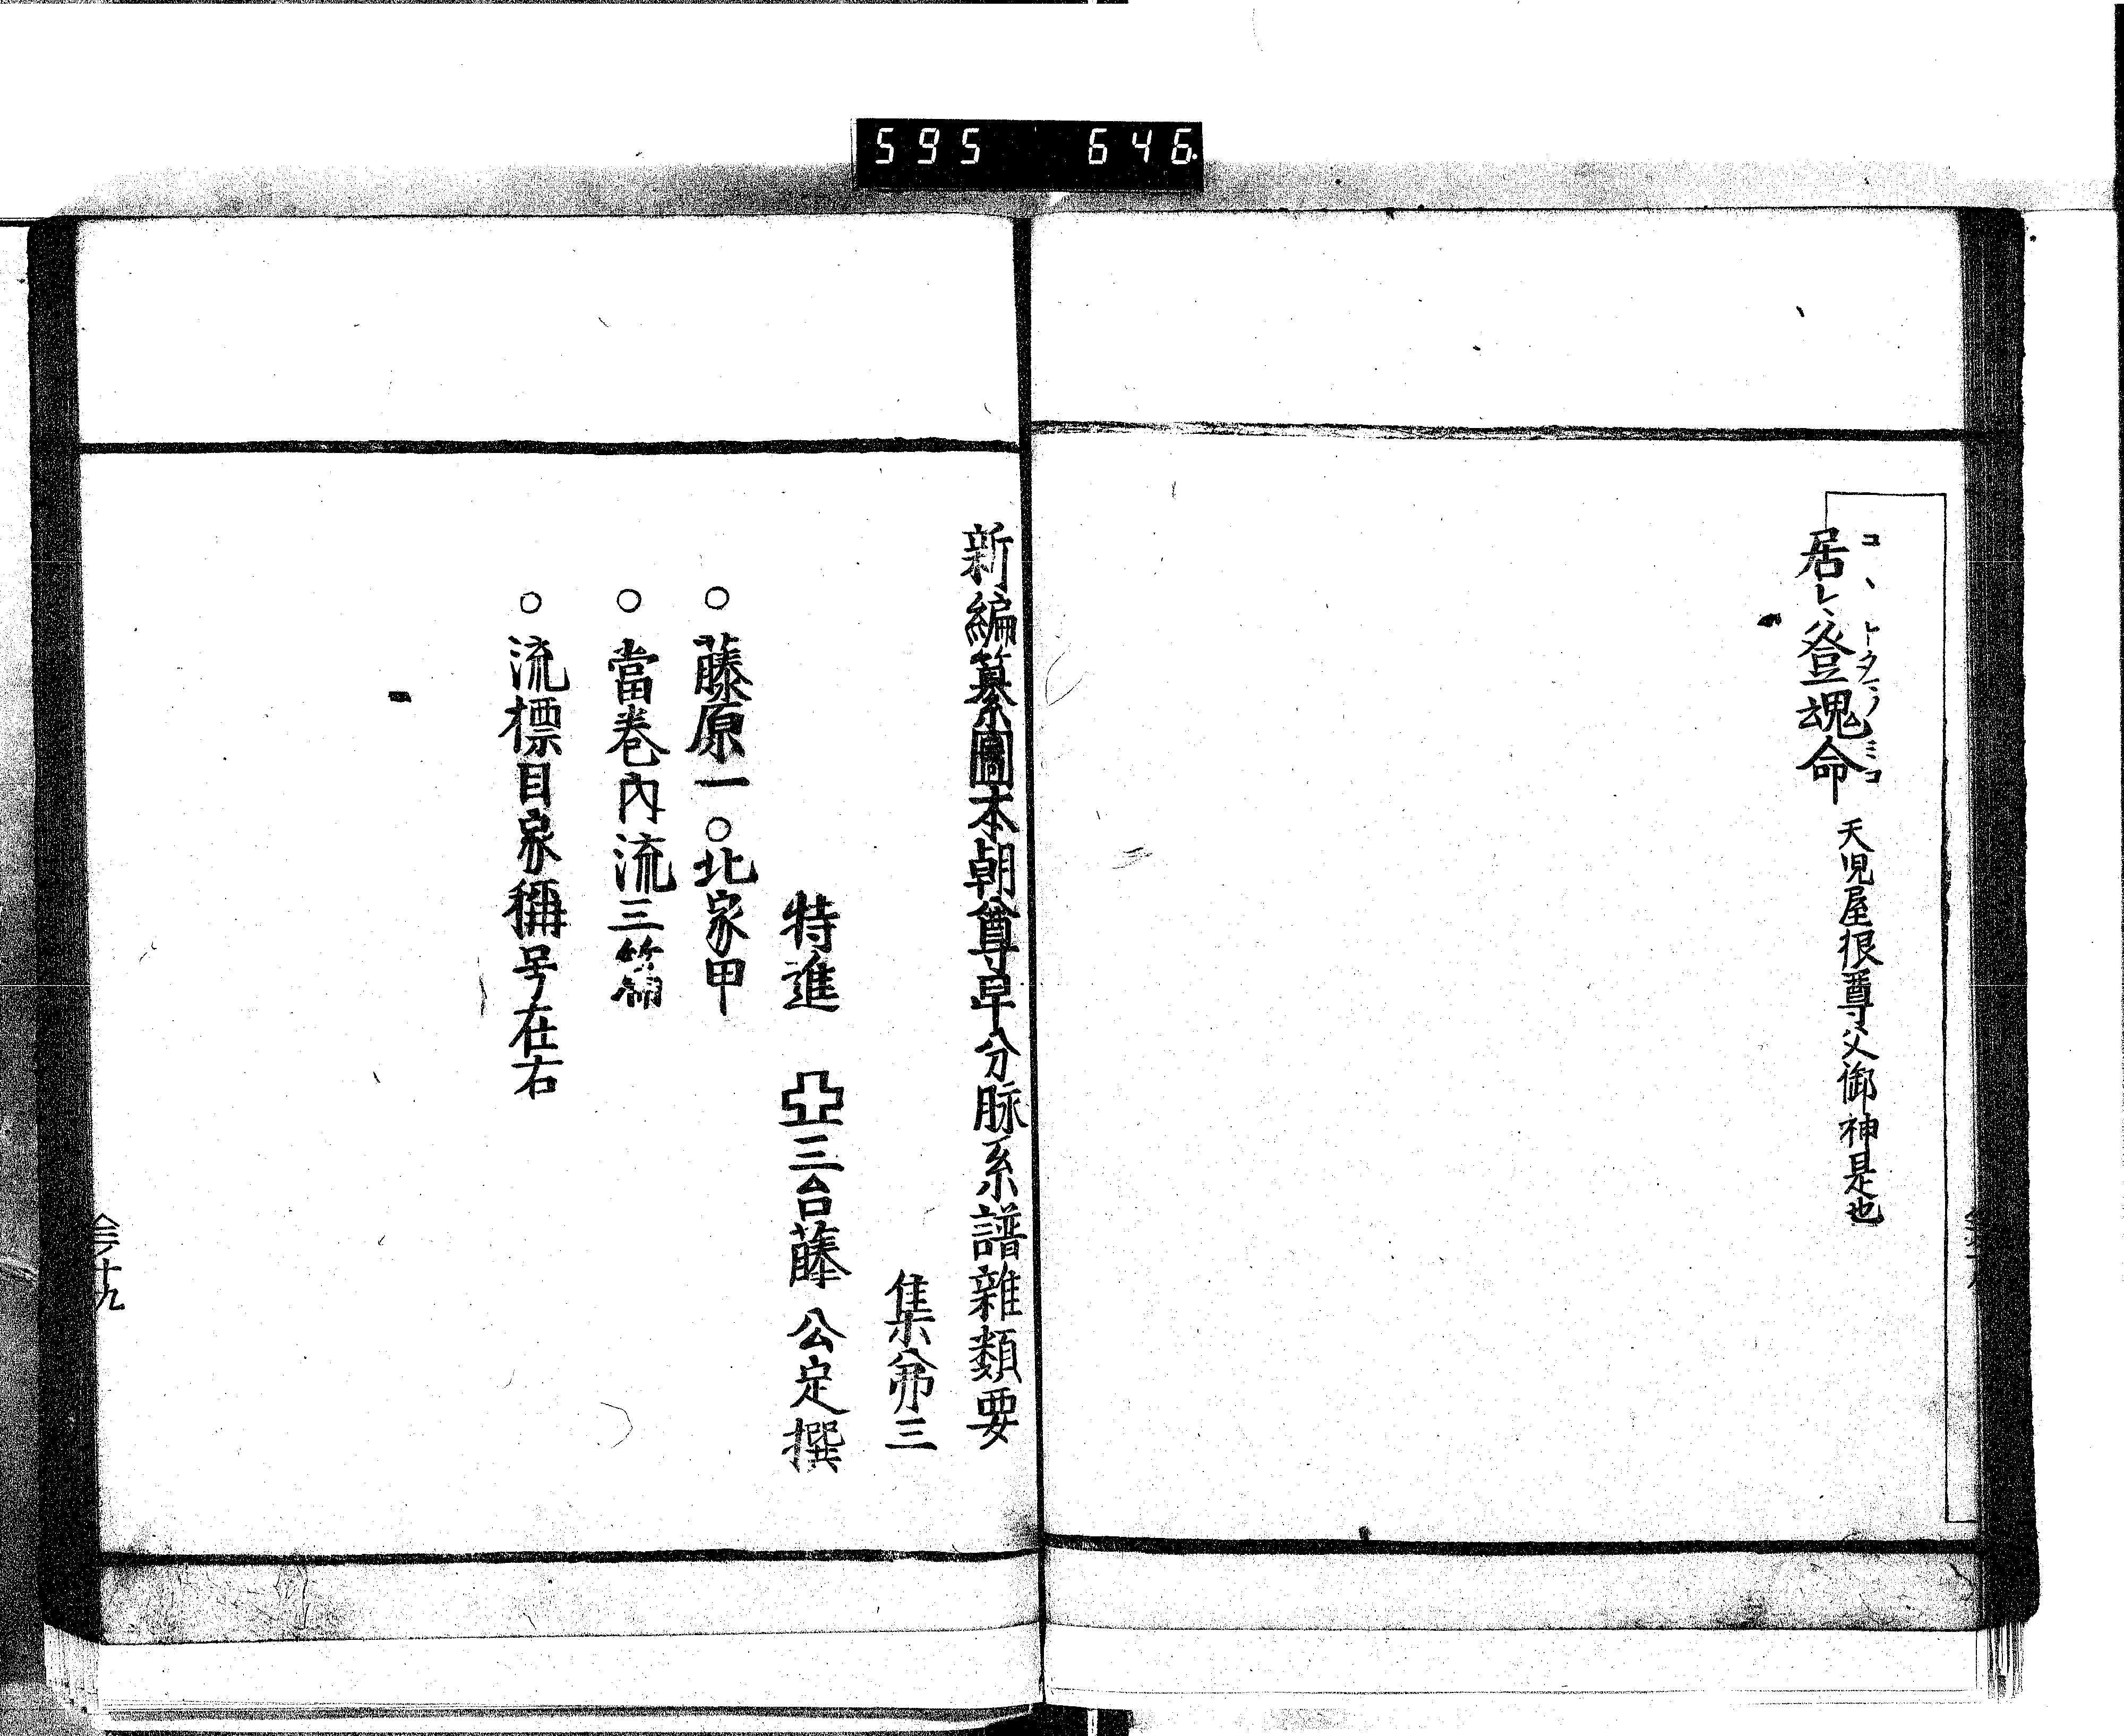 595 646
居々登魂命 天児屋根尊父御神是也
コヽトタマノミコ
新編纂圖本朝尊卑分脉系譜雜類要
集第三
特進 亞三台藤 公定撰
○藤原一 ○北家甲
○當巻內流三篇
○流標目家稱号在右